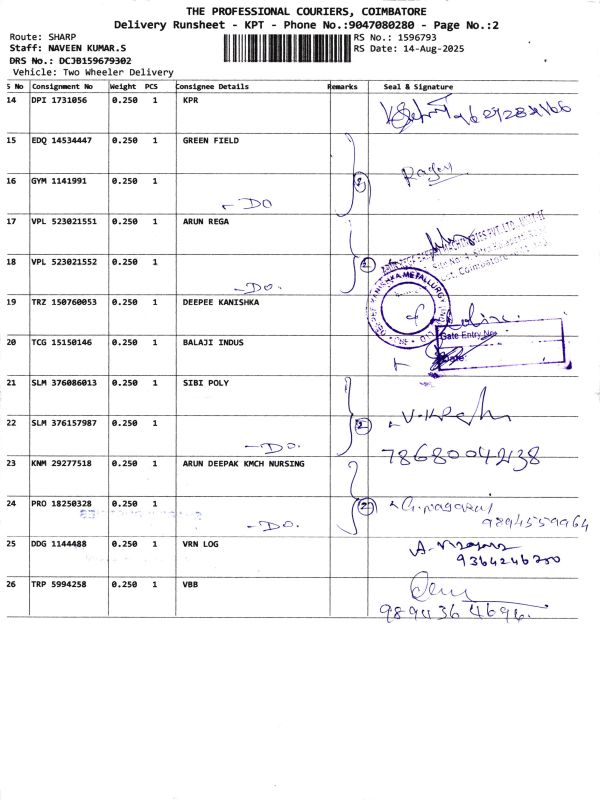 THE PROFESSIONAL COURIERS, COIMBATORE
Delivery Runsheet - KPT - Phone No.:9047080280 - Page No.:2
Route: SHARP RS No.: 1596793
Staff: NAVEEN KUMAR.S RS Date: 14-Aug-2025
DRS No.: DCJB159679302
Vehicle: Two Wheeler Delivery
S No Consignment No Weight PCS Consignee Details Remarks Seal & Signature
14 DPI 1731056 0.250 1 KPR
15 EDQ 14534447 0.250 1 GREEN FIELD
16 GYM 1141991 0.250 1 2
- DO
17 VPL 523021551 0.250 1 ARUN REGA
18 VPL 523021552 0.250 1 2
- DO.
19 TRZ 150760053 0.250 1 DEEPEE KANISHKA
Gate Entry No.
20 TCG 15150146 0.250 1 BALAJI INDUS
Date:
21 SLM 376086013 0.250 1 SIBI POLY
22 SLM 376157987 0.250 1 2
- DO.
7868004238
23 KNM 29277518 0.250 1 ARUN DEEPAK KMCH NURSING
24 PRO 18250328 0.250 1 2
- DO.
9894559964
25 DDG 1144488 0.250 1 VRN LOG
9364246700
26 TRP 5994258 0.250 1 VBB
9894364694.